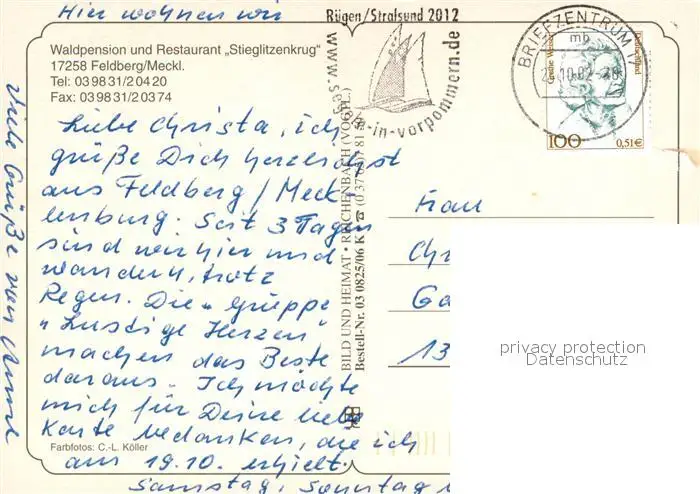 Hier wohnen wir
Rügen/Stralsund 2012
Waldpension und Restaurant „Stieglitzenkrug"
17258 Feldberg/Meckl.
Tel: 03 98 31/2 04 20
Fax: 03 98 31/2 03 74
Liebe Christa, ich
grüße Dich herzlichst
aus Feldberg / Meck-
lenburg. Seit 3 Tagen
sind wir hier und
wandern, trotz
Regen. Die „Gruppe
„Lustige Herzen"
machen das Beste
daraus. Ich möchte
mich für Deine liebe
Karte bedanken, die ich
am 19.10. erhielt.
Samstag, Sonntag
Viele Grüße von
Farbfotos: C.-L. Köller
BILD UND HEIMAT · REICHENBACH (VOGTL.)
Bestell-Nr. 03 0825/06 K
-in-vorpommern.de
BRIEFZENTRUM 17
mb
Deutschland
100
0,51€
Frau
Ch
Ga
13
privacy protection
Datenschutz